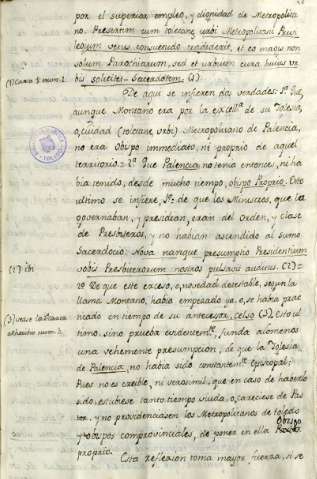 por el superior empleo, y dignidad de Metropolita
no. Presertim cum Toletane urbi Metropolitani Privi
legium vetus consuetudo tradiderit, et eo magis non
solum Parrochiarum, sed et urbium cura huius ur
bis solicitet Sacerdotem. (1)
(1) Carta 1. num. 1.
De aqui se infieren dos verdades: 1ª Que,
aunque Montano era por la excellª de su Iglesia,
o ciudad (Toletane urbi) Metropolitano de Palencia,
no era Obispo immediato, ni proprio de aquel
territorio = 2ª Que Palencia no tenia entonces, ni ha
bia tenido, desde mucho tiempo, obispo Proprio. Esto
ultimo se infiere 1º de que los Ministros, que la
governaban, y presidian, eran del Orden, y clase
de Presbiteros, y no habian ascendido al sumo
Sacerdocio. Nova namque presumptio Presidentium
vobis Presbiterorum nostros pulsavit auditus. (2) =
(2) Ibi
2º De que este exceso, o novedad detestable, segun la
llama Montano, habia empezado ya, o se habia prac
ticado en tiempo de su antecesor, Celso (3). Esto ul
timo, sino prueba evidentemte, funda alomenos
una vehemente presumpcion, de que la Iglesia
de Palencia, no habia sido constantemte Episcopal;
Pues no es creible, ni verosimil, que en caso de haverlo
sido, estubiese tanto tiempo viuda, o careciese de Pas
tor, y no providenciasen los Metropolitanos de Toledo
y obispos comprovinciales, de poner en ella Obispo
proprio.
Esta reflexion toma mayor fuerza, si se